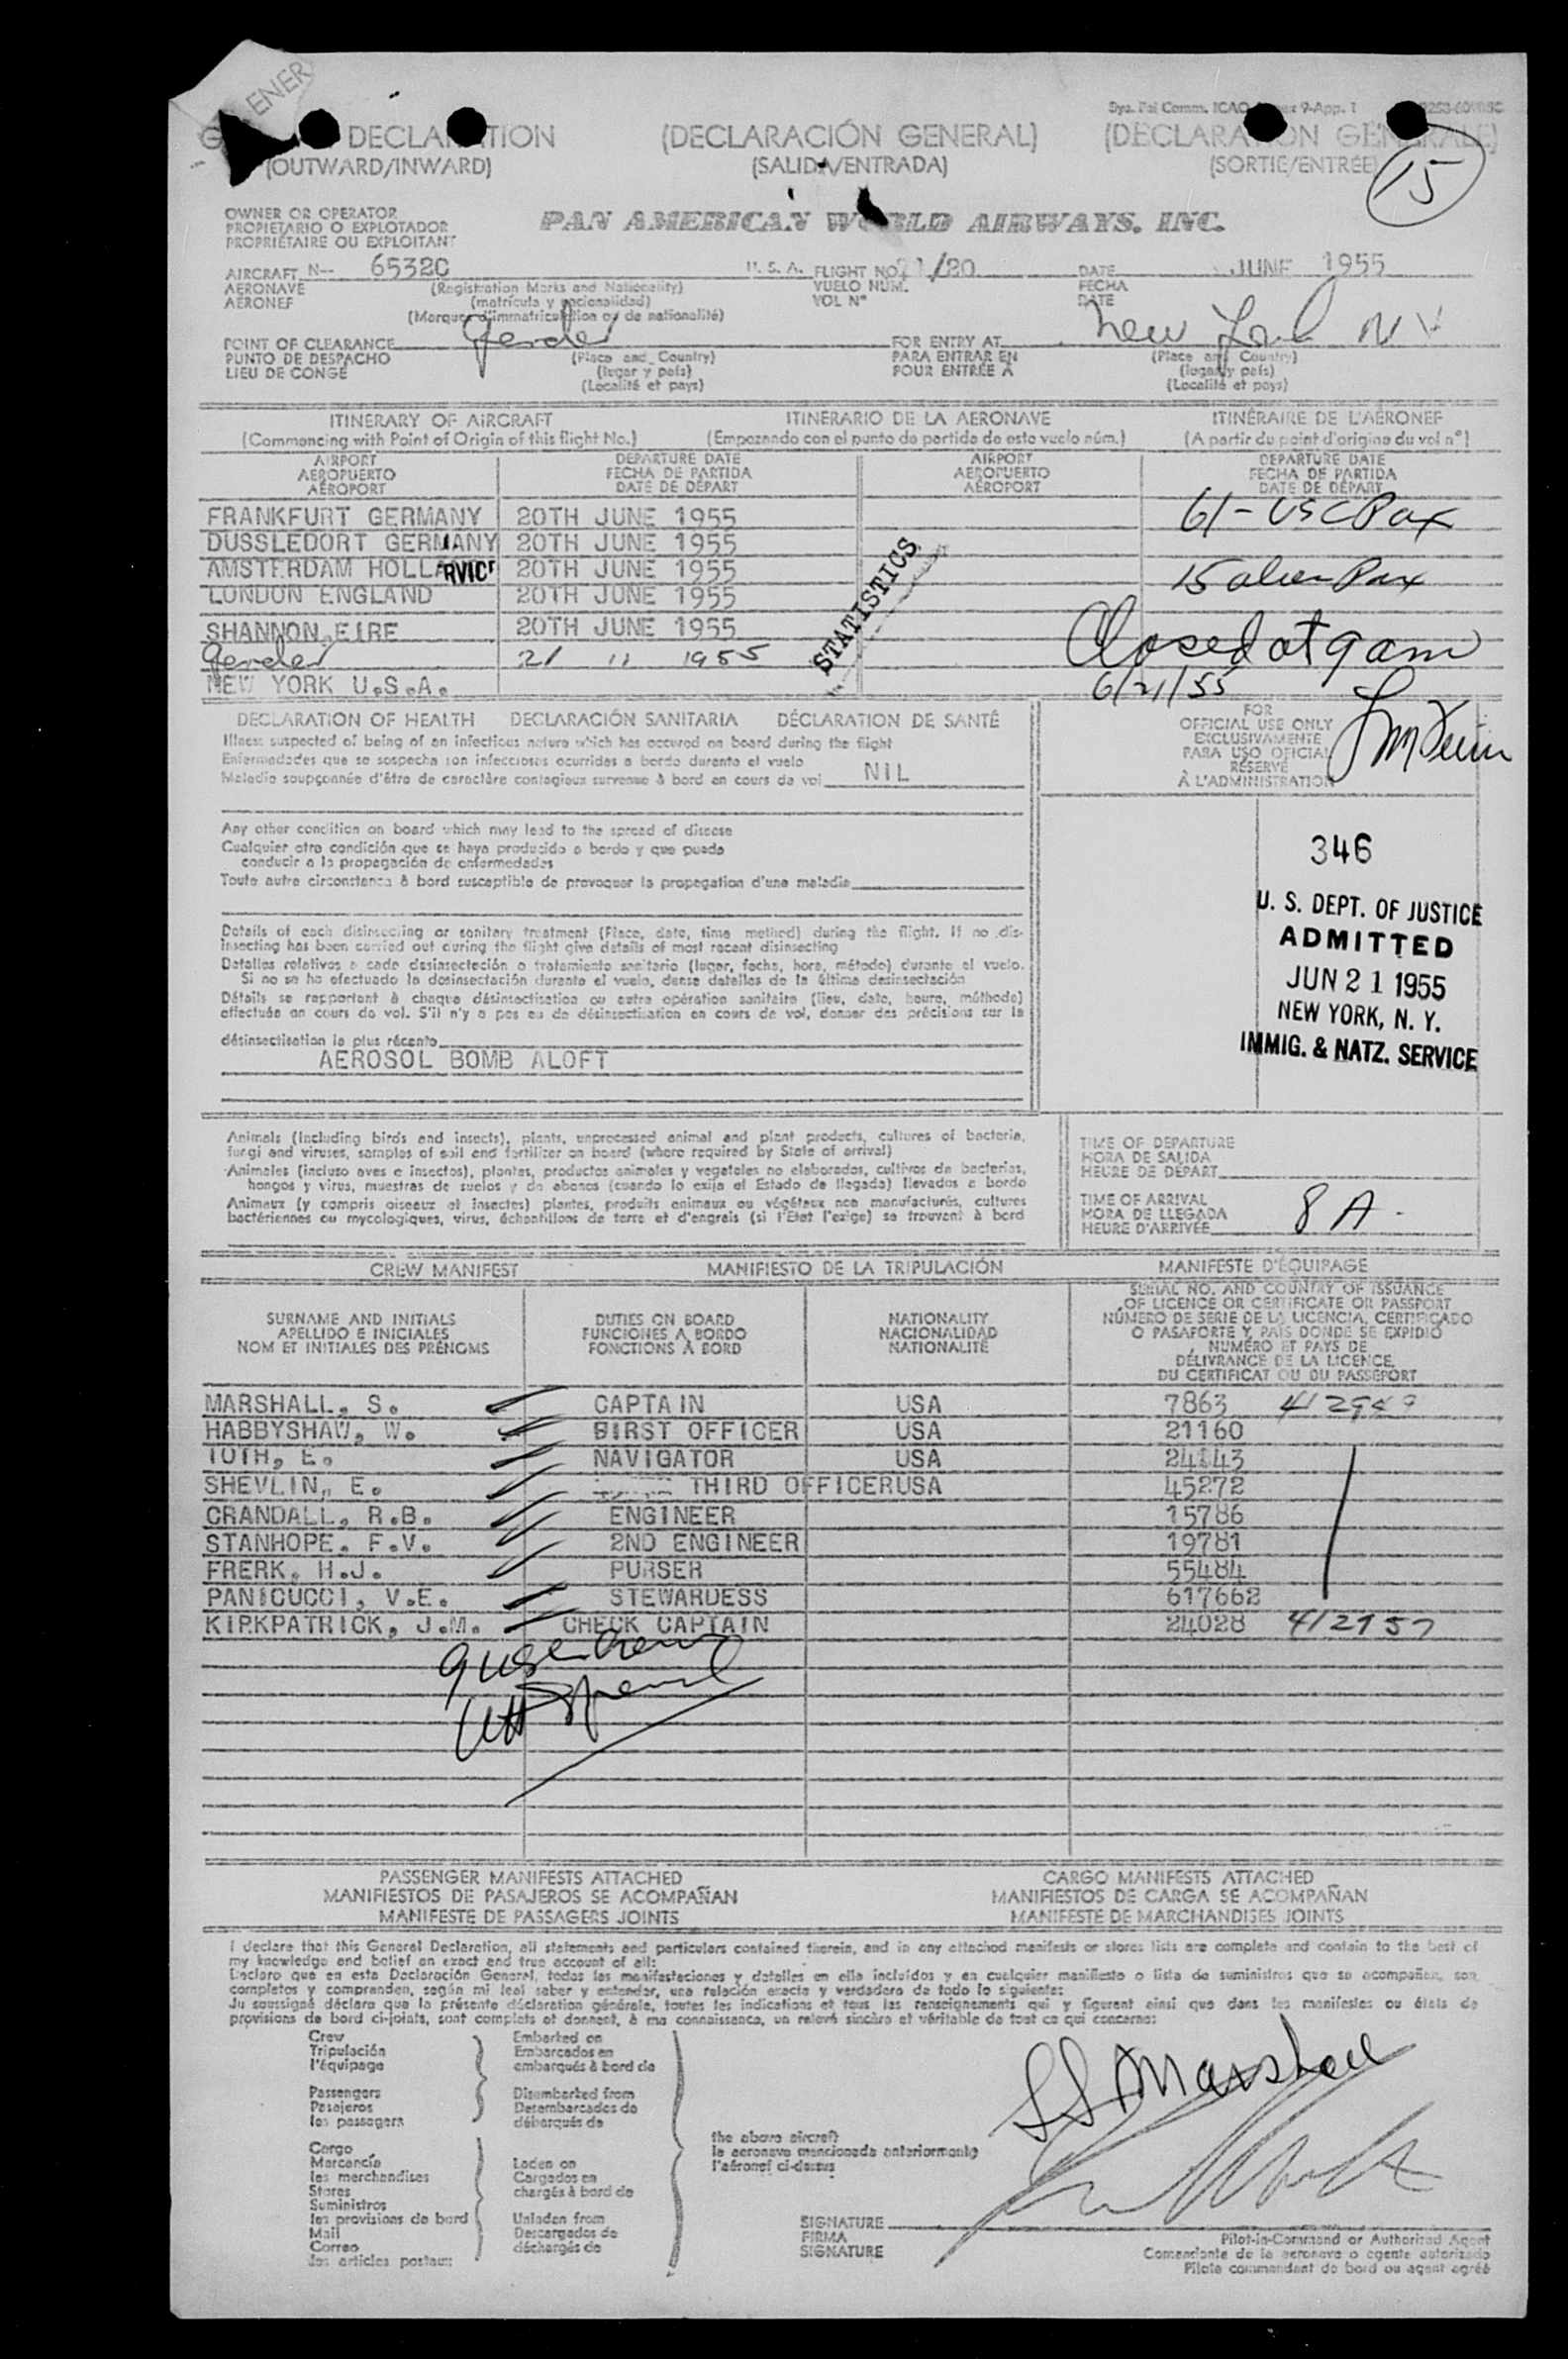 ENER
DECLARATION (DECLARACIÓN GENERAL) (DECLARATION GÉNÉRALE)
(OUTWARD/INWARD) (SALIDA/ENTRADA) (SORTIE/ENTRÉE)
15
OWNER OR OPERATOR
PROPIETARIO O EXPLOTADOR
PROPRIÉTAIRE OU EXPLOITANT
PAN AMERICAN WORLD AIRWAYS, INC.
AIRCRAFT N-- 6532C U. S. A. FLIGHT NO. /20 DATE JUNE 1955
AERONAVE (Registration Marks and Nationality) VUELO NUM. FECHA
AÉRONEF (matrícula y nacionalidad) VOL N° DATE
(Marques d'immatriculation ou de nationalité)
POINT OF CLEARANCE Gander FOR ENTRY AT New York N Y
PUNTO DE DESPACHO (Place and Country) PARA ENTRAR EN (Place and Country)
LIEU DE CONGÉ (lugar y país) POUR ENTRÉE À (lugar y país)
(Localité et pays) (Localité et pays)
ITINERARY OF AIRCRAFT ITINERARIO DE LA AERONAVE ITINÉRAIRE DE L'AÉRONEF
(Commencing with Point of Origin of this flight No.) (Empezando con el punto de partida de este vuelo núm.) (A partir du point d'origine du vol n°)
AIRPORT DEPARTURE DATE AIRPORT DEPARTURE DATE
AEROPUERTO FECHA DE PARTIDA AEROPUERTO FECHA DE PARTIDA
AÉROPORT DATE DE DÉPART AÉROPORT DATE DE DÉPART
FRANKFURT GERMANY 20TH JUNE 1955 61 - USC Pax
DUSSLEDORT GERMANY 20TH JUNE 1955
AMSTERDAM HOLLA RVICE 20TH JUNE 1955 15 alien Pax
LONDON ENGLAND 20TH JUNE 1955
SHANNON EIRE 20TH JUNE 1955 Closed at 9 am
Gander 21 11 1955
NEW YORK U.S.A. 6/21/55
STATISTICS
DECLARATION OF HEALTH DECLARACIÓN SANITARIA DÉCLARATION DE SANTÉ
Illness suspected of being of an infectious nature which has occured on board during the flight
Enfermedades que se sospecha son infecciosas ocurridas a bordo durante el vuelo
Maladie soupçonnée d'être de caractère contagieux survenue à bord en cours de vol NIL
FOR
OFFICIAL USE ONLY
EXCLUSIVAMENTE
PARA USO OFICIAL
RÉSERVÉ
À L'ADMINISTRATION
Any other condition on board which may lead to the spread of disease
Cualquier otra condición que se haya producido a bordo y que pueda
conducir a la propagación de enfermedades
Toute autre circonstance à bord susceptible de provoquer la propagation d'une maladie
346
U. S. DEPT. OF JUSTICE
ADMITTED
JUN 21 1955
NEW YORK, N. Y.
IMMIG. & NATZ. SERVICE
Details of each disinsecting or sanitary treatment (Place, date, time method) during the flight. If no dis-
insecting has been carried out during the flight give details of most recent disinsecting
Detalles relativos a cada desinsectación o tratamiento sanitario (lugar, fecha, hora, método) durante el vuelo.
Si no se ha efectuado la desinsectación durante el vuelo, dense detalles de la última desinsectación
Détails se rapportant à chaque désinsectisation ou autre opération sanitaire (lieu, date, heure, méthode)
effectuée en cours de vol. S'il n'y a pas eu de désinsectisation en cours de vol, donner des précisions sur la
désinsectisation la plus récente
AEROSOL BOMB ALOFT
Animals (including birds and insects), plants, unprocessed animal and plant products, cultures of bacteria,
fungi and viruses, samples of soil and fertilizer on board (where required by State of arrival)
Animales (incluso aves e insectos), plantas, productos animales y vegetales no elaborados, cultivos de bacterias,
hongos y virus, muestras de suelos y de abonos (cuando lo exija el Estado de llegada) llevados a bordo
Animaux (y compris oiseaux et insectes) plantes, produits animaux ou végétaux non manufacturés, cultures
bactériennes ou mycologiques, virus, échantillons de terre et d'engrais (si l'État l'exige) se trouvant à bord
TIME OF DEPARTURE
HORA DE SALIDA
HEURE DE DÉPART
TIME OF ARRIVAL
HORA DE LLEGADA
HEURE D'ARRIVÉE 8 A
CREW MANIFEST MANIFIESTO DE LA TRIPULACIÓN MANIFESTE D'ÉQUIPAGE
SURNAME AND INITIALS
APELLIDO E INICIALES
NOM ET INITIALES DES PRÉNOMS
DUTIES ON BOARD
FUNCIONES A BORDO
FONCTIONS À BORD
NATIONALITY
NACIONALIDAD
NATIONALITÉ
SERIAL NO. AND COUNTRY OF ISSUANCE
OF LICENCE OR CERTIFICATE OR PASSPORT
NÚMERO DE SERIE DE LA LICENCIA, CERTIFICADO
O PASAPORTE Y PAIS DONDE SE EXPIDIÓ
NUMÉRO ET PAYS DE
DÉLIVRANCE DE LA LICENCE,
DU CERTIFICAT OU DU PASSEPORT
MARSHALL, S. CAPTAIN USA 7863
HABBYSHAW, W. BIRST OFFICER USA 21160
TOTH, E. NAVIGATOR USA 24143
SHEVLIN, E. THIRD OFFICERUSA 45272
CRANDALL, R.B. ENGINEER 15786
STANHOPE, F.V. 2ND ENGINEER 19781
FRERK, H.J. PURSER 55484
PANICUCCI, V.E. STEWARDESS 617662
KIRKPATRICK, J.M. CHECK CAPTAIN 24028 412157
PASSENGER MANIFESTS ATTACHED CARGO MANIFESTS ATTACHED
MANIFIESTOS DE PASAJEROS SE ACOMPAÑAN MANIFIESTOS DE CARGA SE ACOMPAÑAN
MANIFESTE DE PASSAGERS JOINTS MANIFESTE DE MARCHANDISES JOINTS
I declare that this General Declaration, all statements and particulars contained therein, and in any attached manifests or stores lists are complete and contain to the best of
my knowledge and belief an exact and true account of all:
Declaro que en esta Declaración General, todas las manifestaciones y detalles en ella incluídos y en cualquier manifiesto o lista de suministros que se acompañen, son
completos y comprenden, según mi leal saber y entender, una relación exacta y verdadera de todo lo siguiente:
Je soussigné déclare que la présente déclaration générale, toutes les indications et tous les renseignements qui y figurent ainsi que dans les manifestes ou états de
provisions de bord ci-joints, sont complets et donnent, à ma connaissance, un relevé sincère et véritable de tout ce qui concerne:
Crew Embarked on
Tripulación Embarcados en
l'équipage embarqués à bord de
Passengers Disembarked from
Pasajeros Desembarcados de
les passagers débarqués de
the above aircraft
la aeronave mencionada anteriormente
l'aéronef ci-dessus
Cargo
Mercancía Laden on
les merchandises Cargados en
Stores chargés à bord de
Suministros
les provisions de bord Unladen from
Mail Descargados de
Correo déchargés de
les articles postaux
S S Marshall
SIGNATURE
FIRMA
SIGNATURE
Pilot-in-Command or Authorized Agent
Comandante de la aeronave o agente autorizado
Pilote commandant de bord ou agent agréé